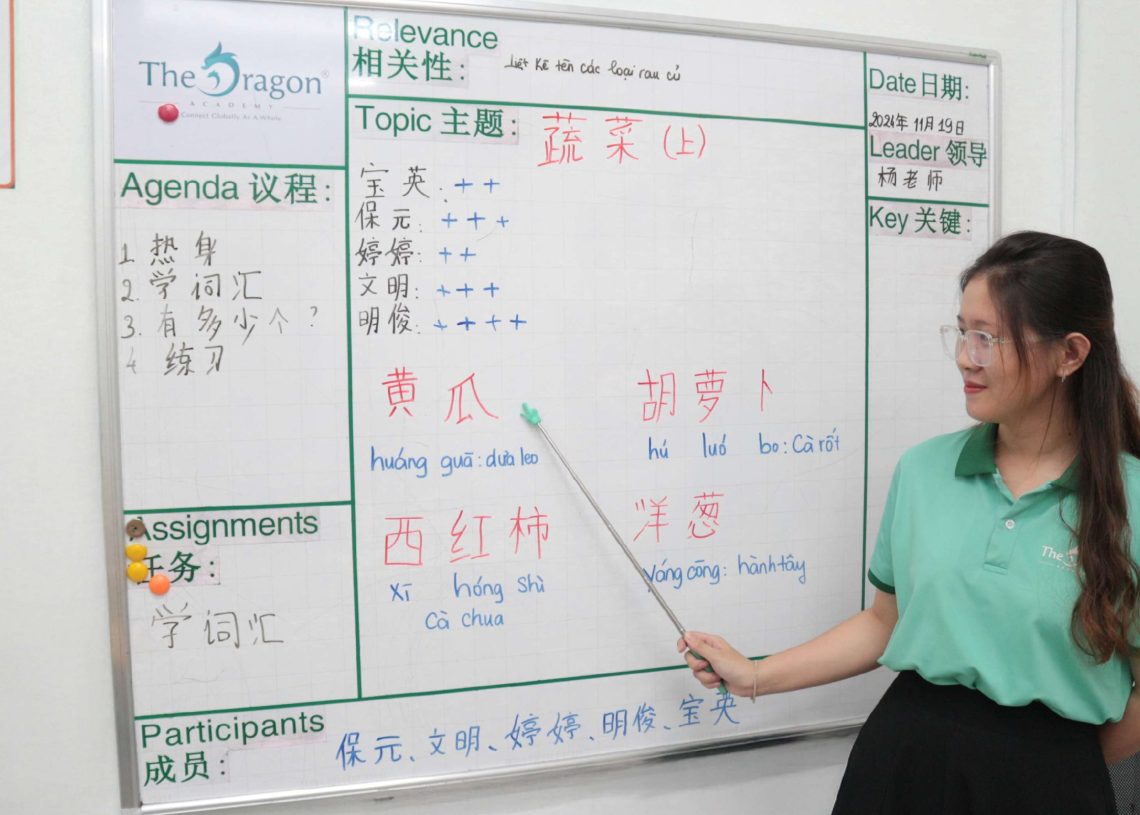 The Dragon®
ACADEMY
Connect Globally As A Whole
Relevance
相关性:
Liệt kê tên các loại rau củ
Date日期:
2024年 11月 19日
Leader 领导
杨老师
Key 关键:
Topic 主题: 蔬菜 (上)
宝英: + +
保元: + + +
婷婷: + +
文明: + + +
明俊: + + + +
Agenda 议程:
1. 热身
2. 学词汇
3. 有多少个?
4 练习
黄瓜
huáng guā: dưa leo
胡萝卜
hú luó bo: Cà rốt
西红柿
xī hóng shì
Cà chua
洋葱
yáng cōng: hành tây
Assignments
任务:
学词汇
Participants
成员:
保元、文明、婷婷、明俊、宝英
The